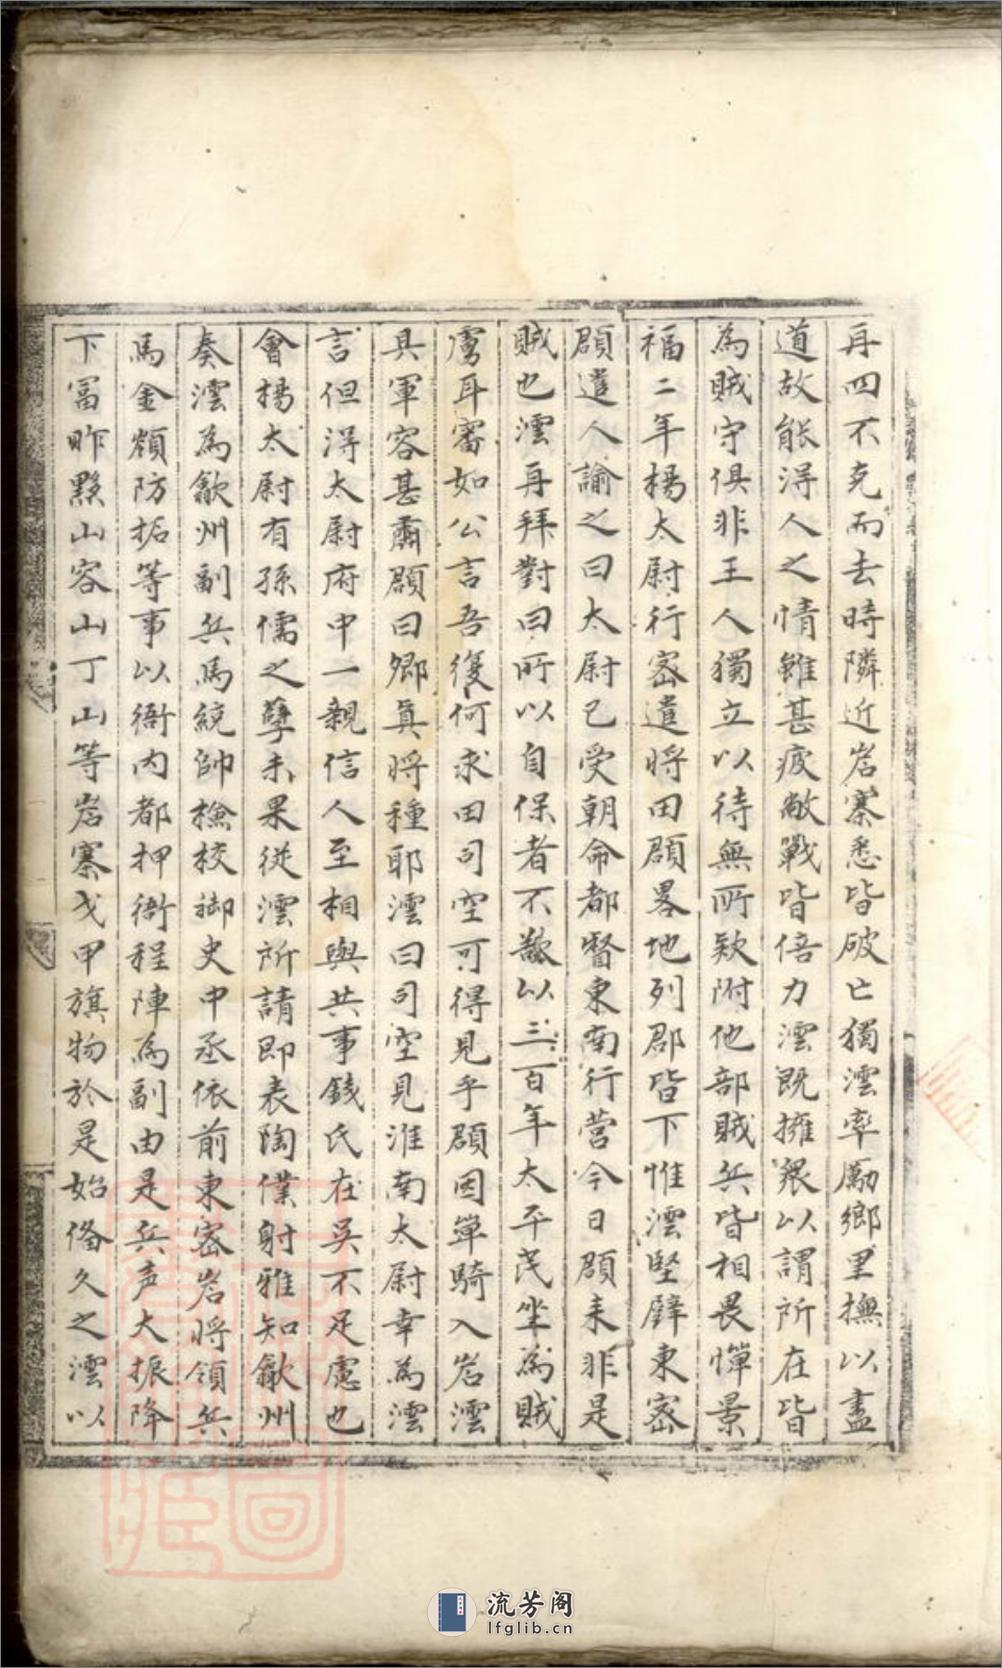 再四不克而去時隣近岩寨悉皆破亡獨澐率勵鄉里撫以盡
道故能得人之情雖甚疲敝戰皆倍力澐既擁衆以謂所在皆
為賊守俱非王人獨立以待無所欵附他部賊兵皆相畏憚景
福二年楊太尉行宻遣将田頵畧地列郡皆下惟澐堅壁東宻
頵遣人諭之曰太尉已受朝命都督東南行营今日頵来非是
賊也澐再拜對曰所以自保者不
以三百年太平民坐為賊
虜耳審如公言吾復何求田司空可得見乎頵因单騎入岩澐
具軍容甚肅頵曰郷真将種耶澐曰司空見淮南太尉幸為澐
言但淂太尉府中一親信人至相與共事錢氏在吴不足慮也
會楊太尉有孫儒之孽未果從澐所請即表陶僕射雅知歙州
奏澐為歙州副兵馬統帥檢校御史中丞依前東宻岩将領兵
馬金
防拓等事以衙内都押衙程陣為副由是兵声大振降
下冨昨黟山容山丁山等岩寨戈甲旗物於是始俻久之澐以
流芳阁
lfglib.cn